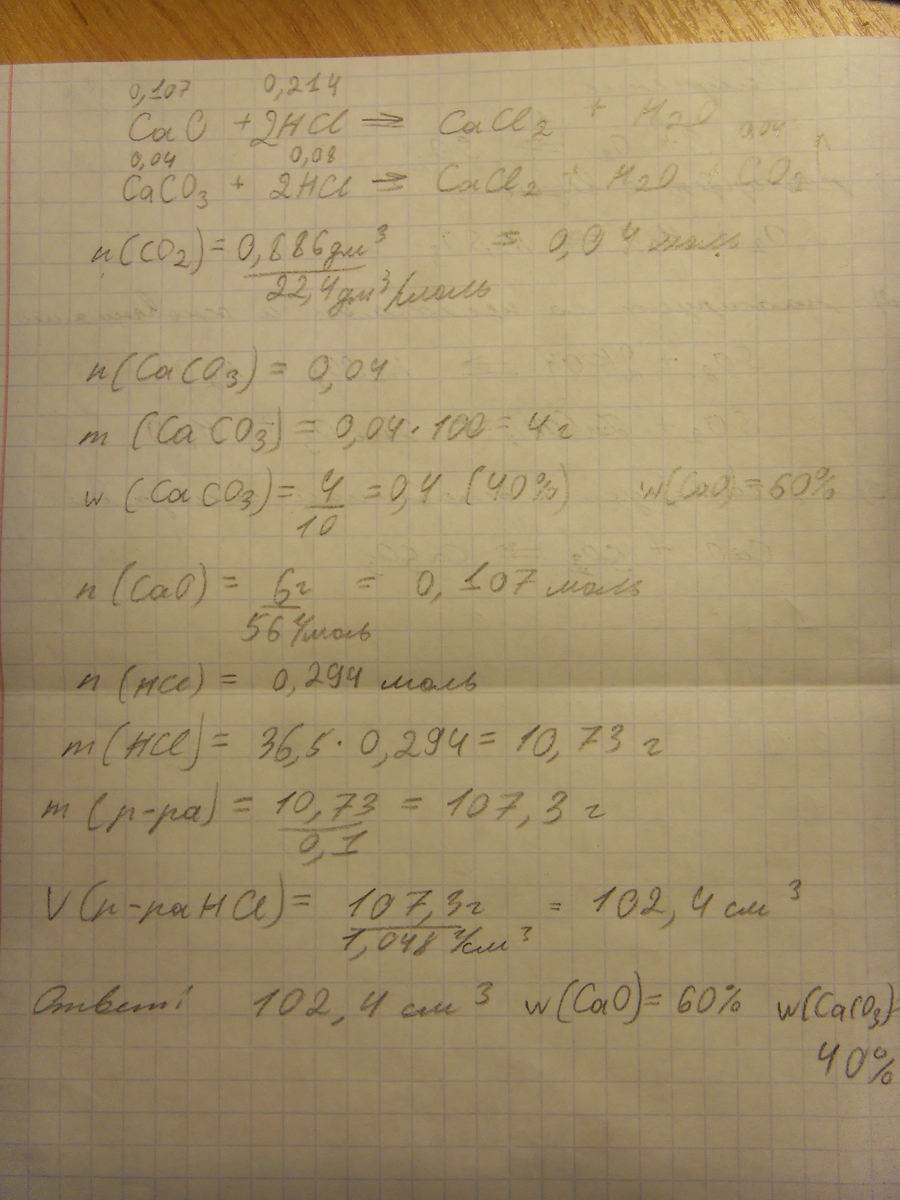 0,107 0,214
CaO + 2HCl ⇒ CaCl₂ + H₂O
0,04 0,08 0,04
CaCO₃ + 2HCl ⇒ CaCl₂ + H₂O CO₂↑
n(CO₂) = 0,886дм³ / 22,4дм³/моль = 0,04 моль
n(CaCO₃) = 0,04
m (CaCO₃) = 0,04·100 = 4г
w (CaCO₃) = 4/10 = 0,4 (40%) w(CaO) = 60%
n(CaO) = 6г / 56г/моль = 0,107 моль
n(HCl) = 0,294 моль
m(HCl) = 36,5·0,294 = 10,73 г
m(р-ра) = 10,73 / 0,1 = 107,3 г
V(р-раHCl) = 107,3г / 1,048г/см³ = 102,4 см³
Ответ: 102,4 см³ w(CaO) = 60% w(CaCO₃) =
40%